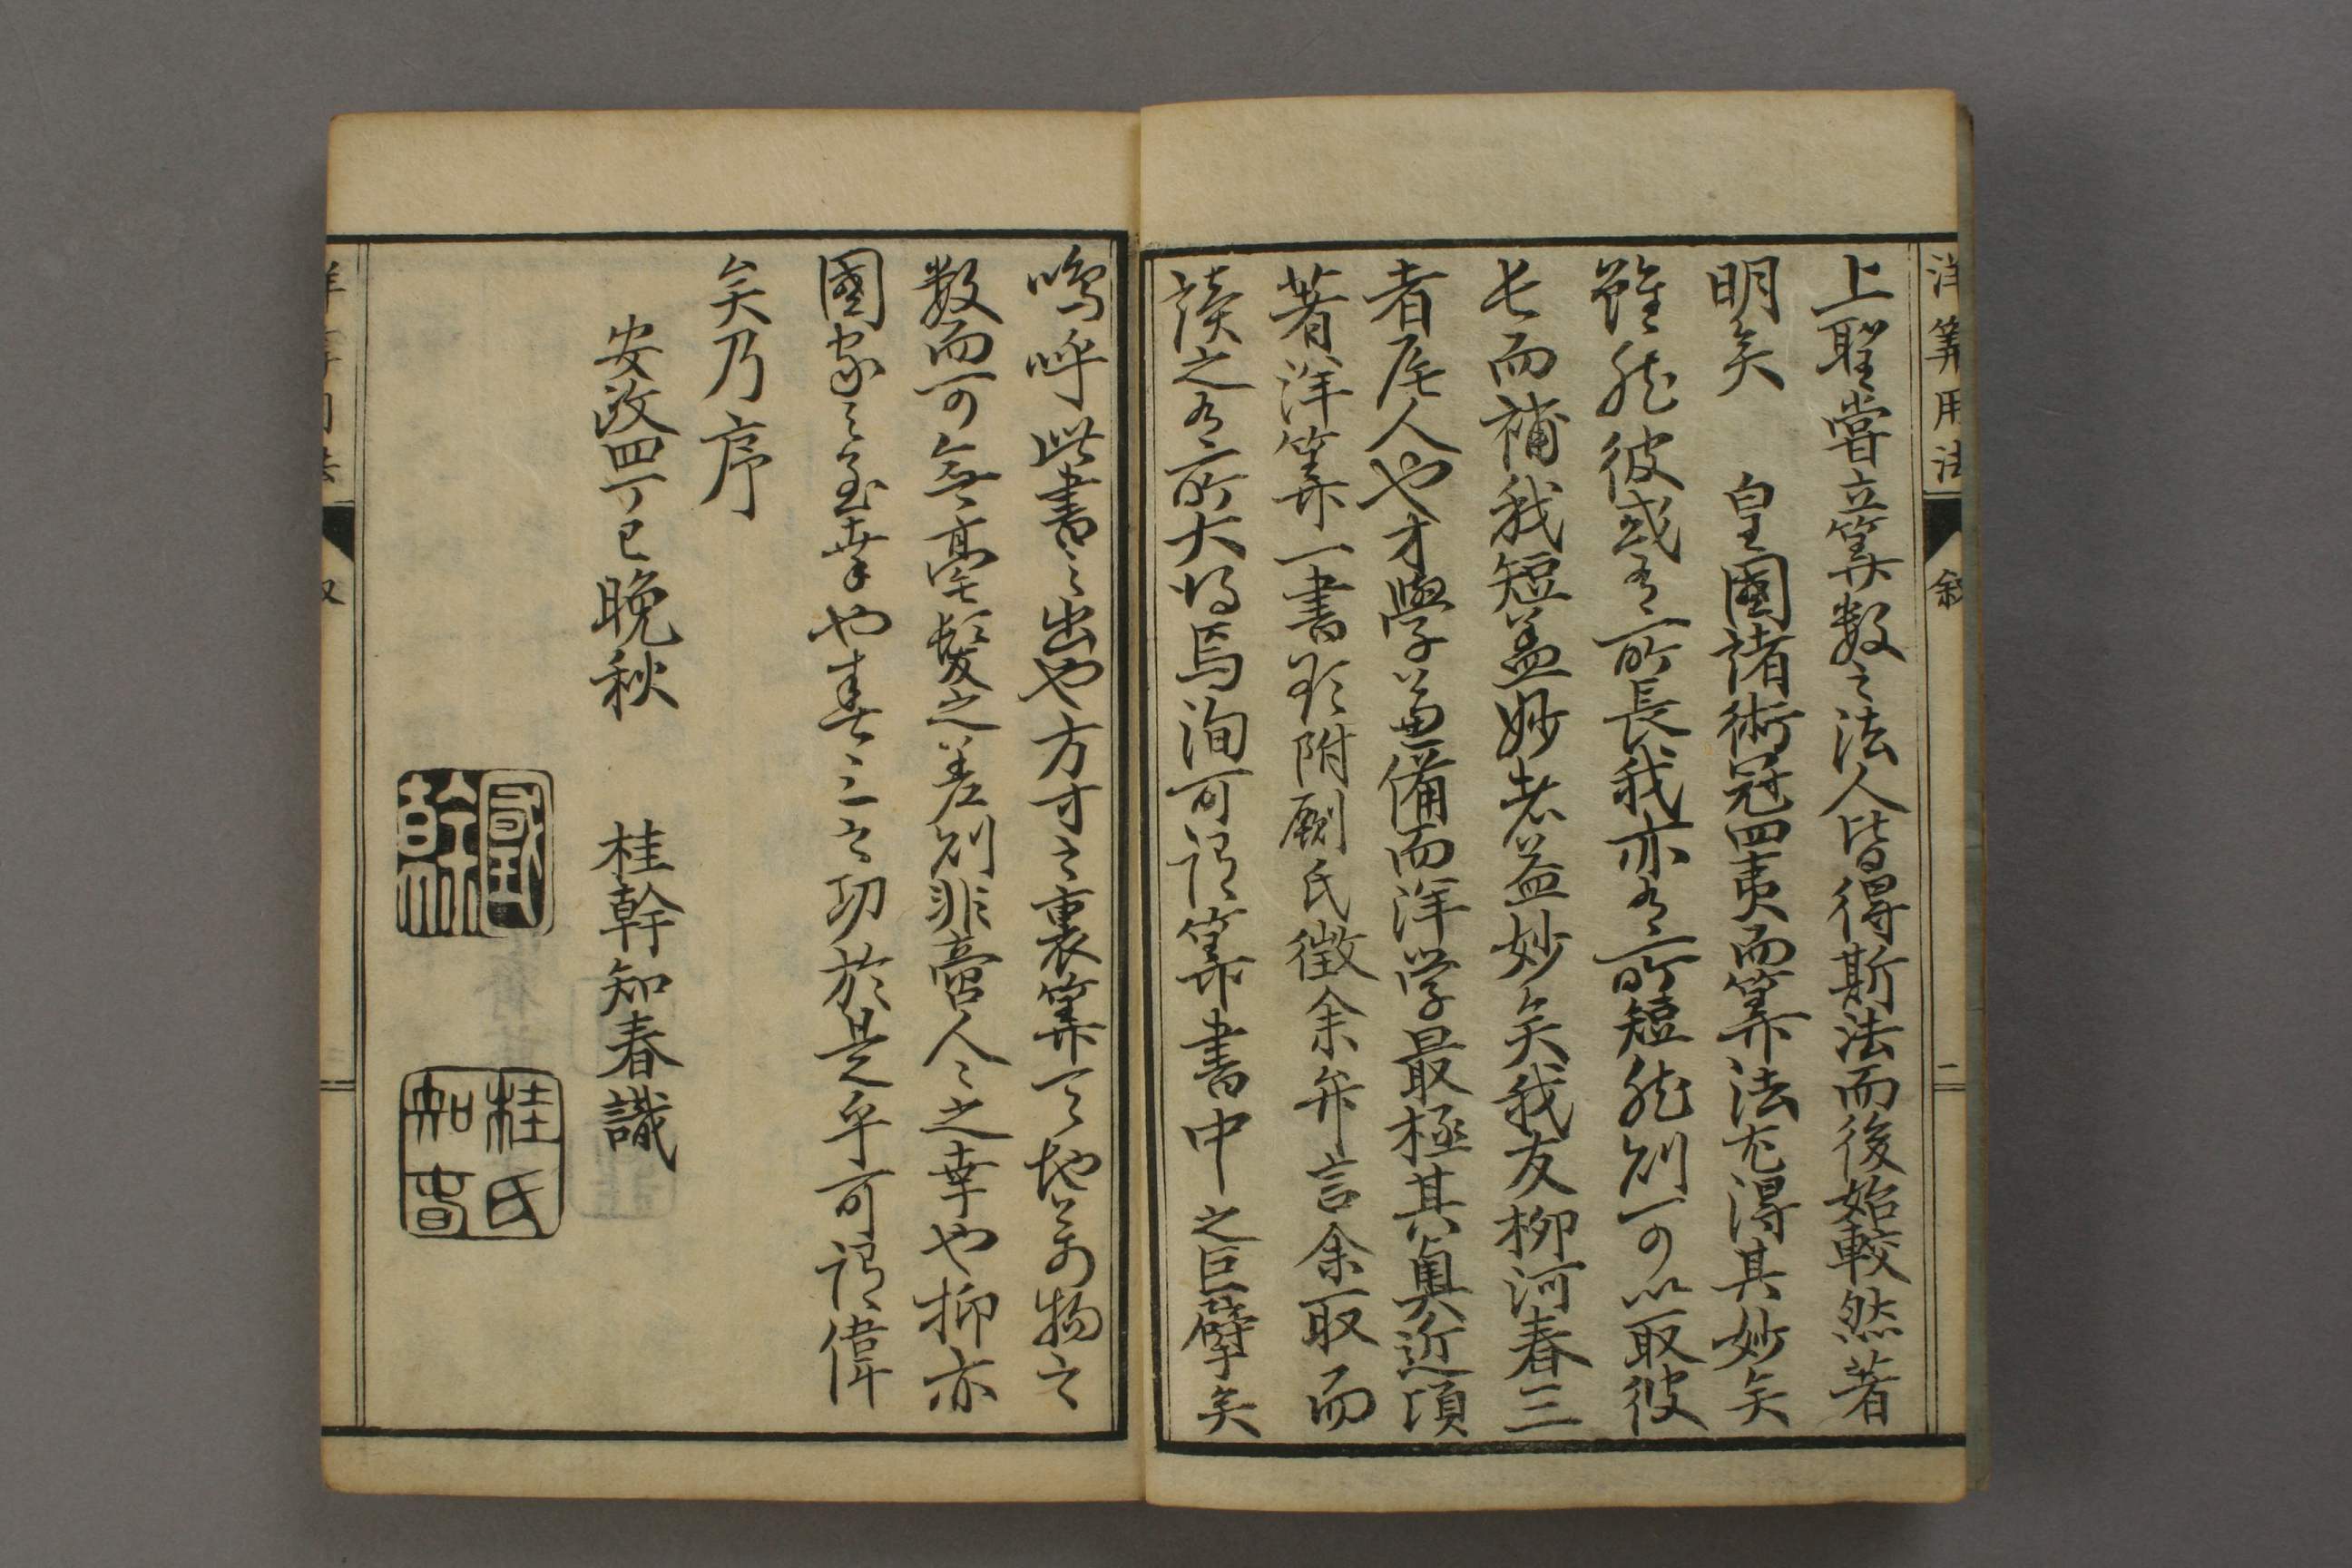 洋算用法
敘
二
上聖嘗立算数之法人皆得斯法而後始較然著
明矣 皇國諸術冠四夷而算法尤得其妙矣
雖然彼或有所長我亦有所短然則可以取彼
長而補我短益妙者益妙矣我友柳河春三
者居人也才學兼備而洋学最極其奧近頃
著洋算一書附剞氏徴余弁言余取而
読之有所大得焉洵可謂算書中之巨擘矣
嗚呼此書之出也方寸之裏算天地万物之
数而可無毫髪之差則非啻人之幸也抑亦
國家之至幸也春三之功於是乎可謂偉
矣乃序
安政四丁巳晩秋 桂幹知春識
國幹
桂氏知春